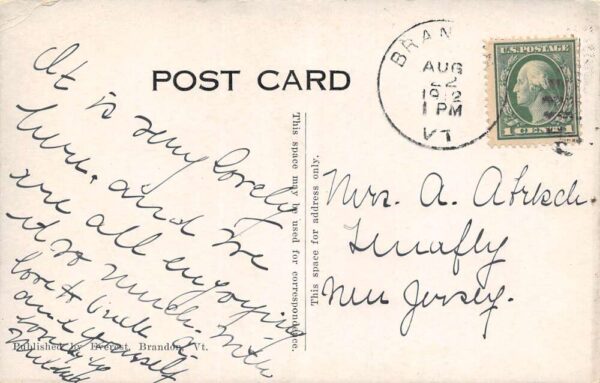 POST CARD
BRAN
AUG
22
1912
1 PM
VT
U.S. POSTAGE
1 CENT 1
It is very lovely
here. and we
are all enjoying
it so much. With
love to Uncle
and yourself
This space may be used for correspondence.
This space for address only.
Mrs. A.
Tenafly
New Jersey.
Published by Everest, Brandon, Vt.